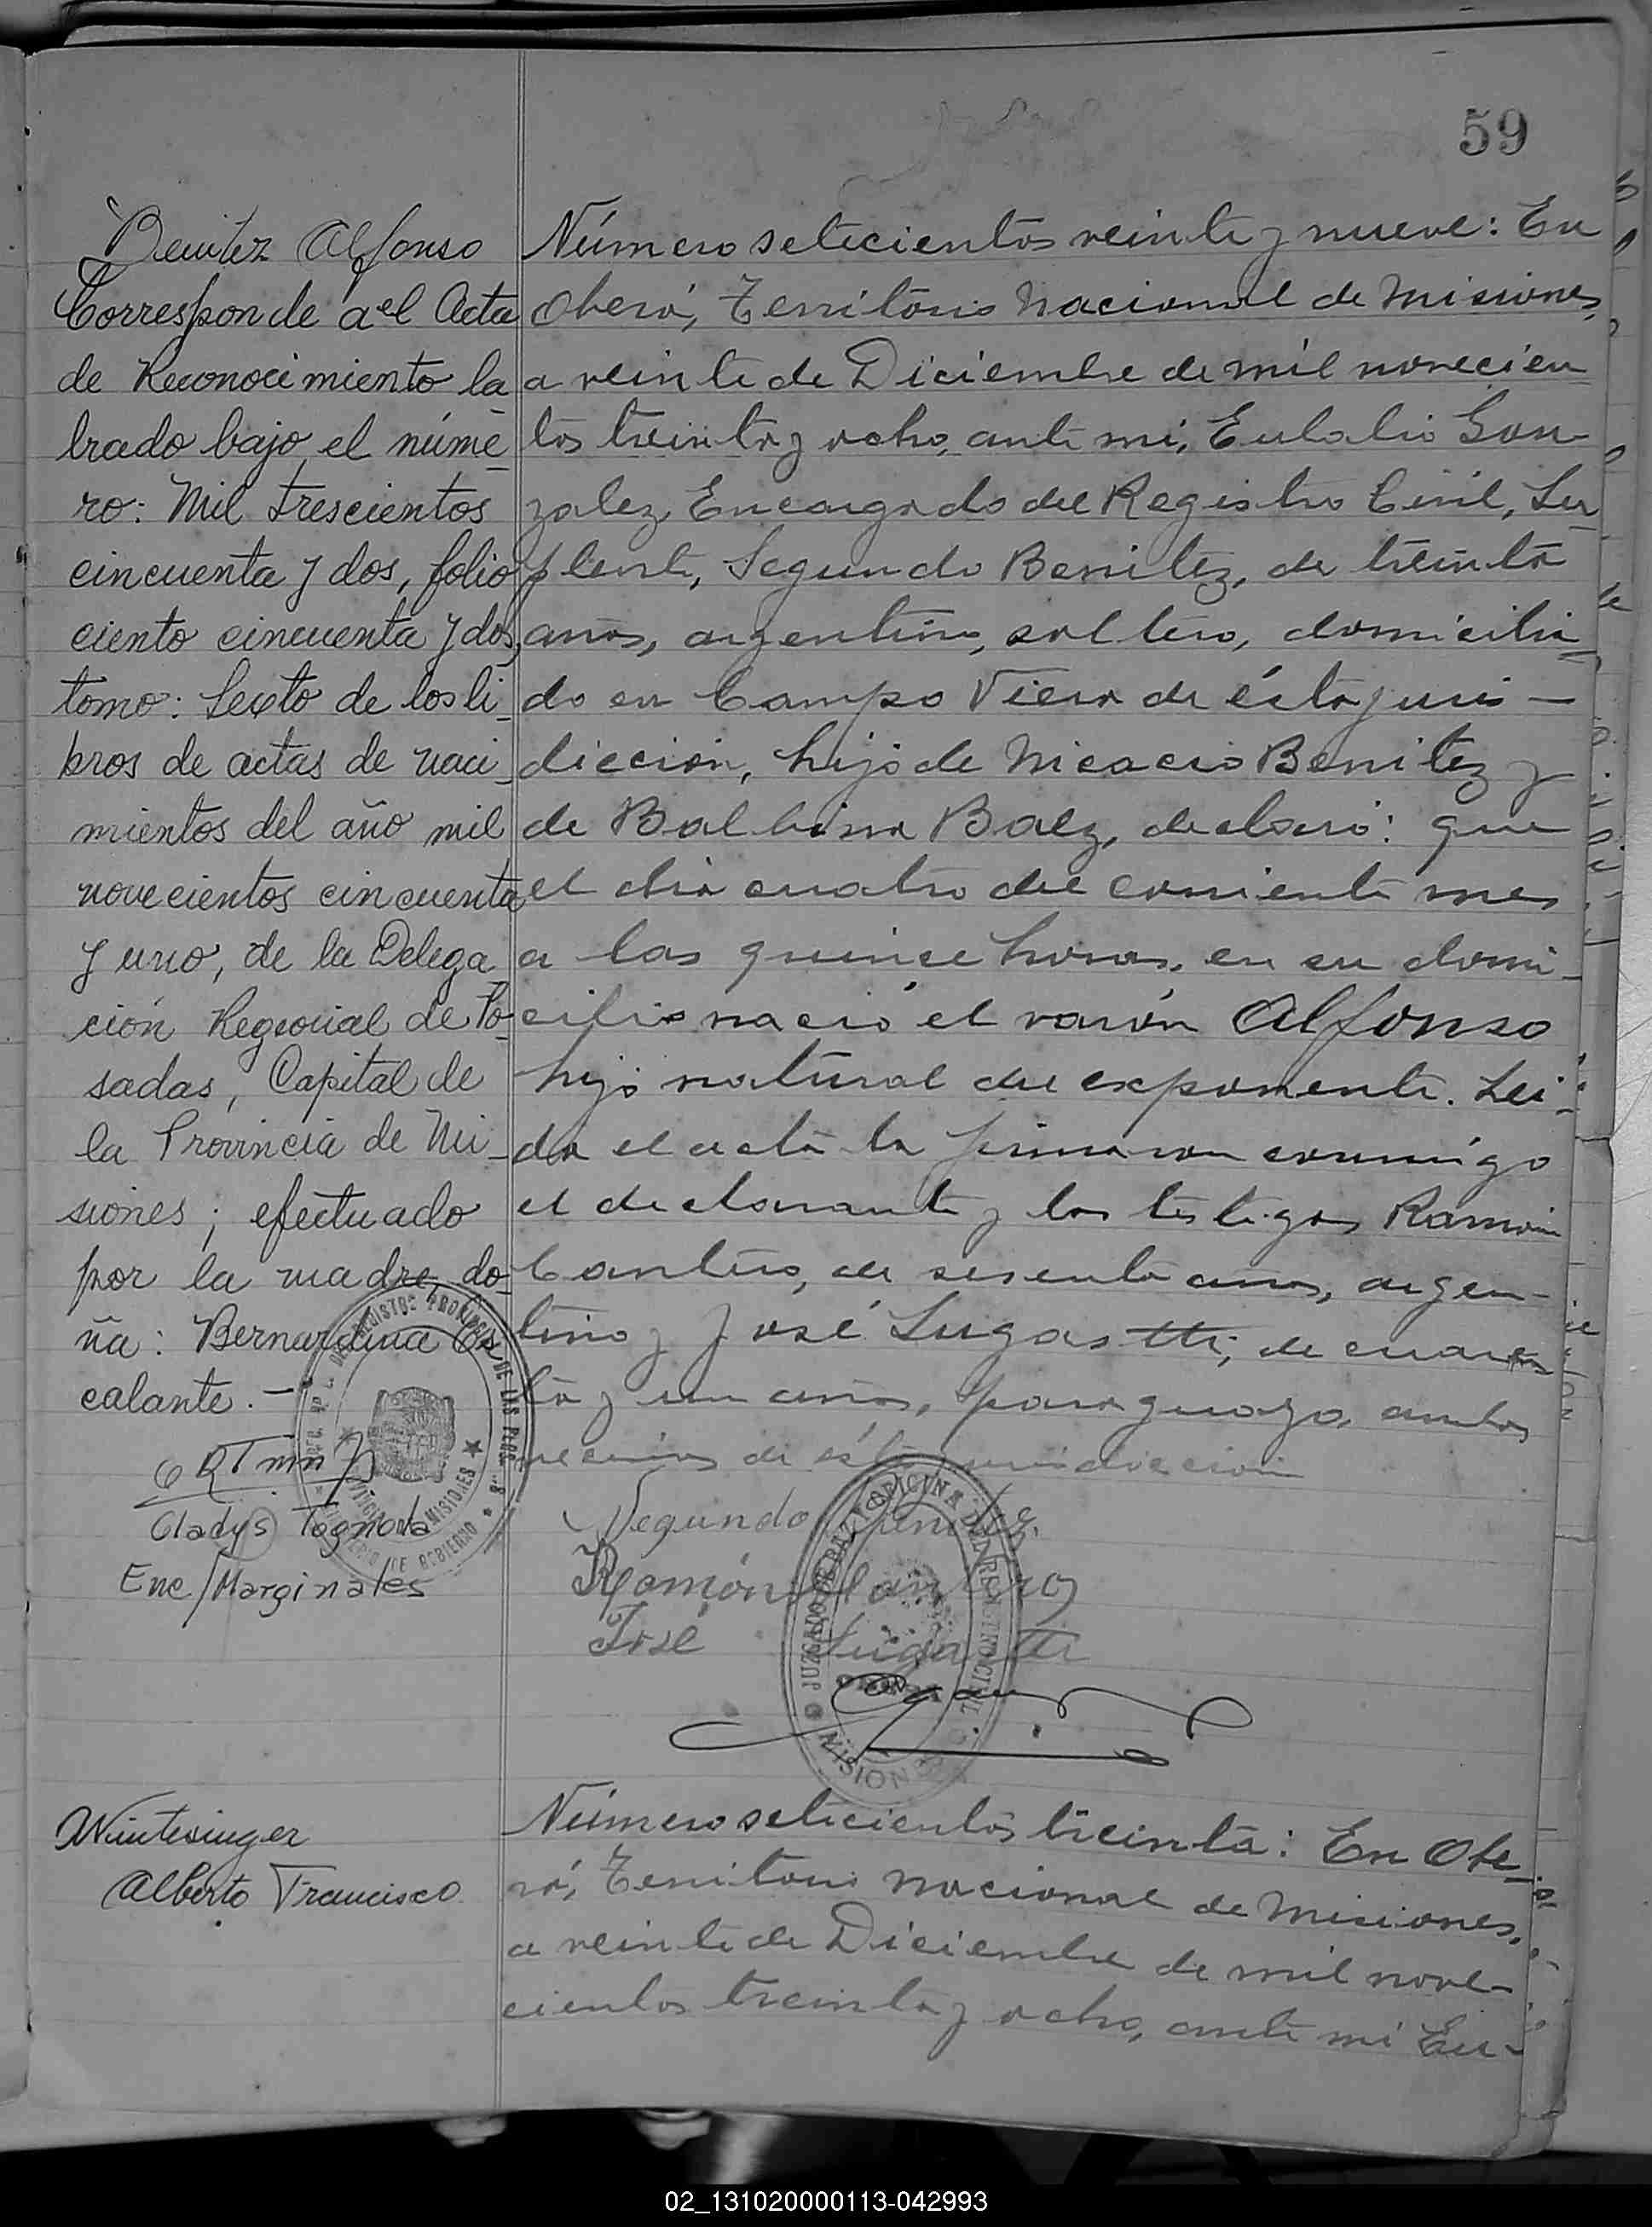 59
Benitez Alfonso
Corresponde a el Acta
de Reconocimiento la
brado bajo el núme
ro: Mil trescientos
cincuenta y dos, folio
ciento cincuenta y dos,
tomo: Sexto de los li-
bros de actas de naci-
mientos del año mil
novecientos cincuenta
y uno, de la Delega
ción Regional de Po-
sadas, Capital de
la Provincia de Mi-
siones; efectuado
por la madre, do-
ña: Bernardina Es
calante. -
Gladys Tognola
Enc/Marginales
Número setecientos veinte y nueve: En
Oberá, Territorio Nacional de Misiones,
a veinte de Diciembre de mil novecien
tos treinta y ocho, ante mi, Eulalio Gon-
zalez, Encargado del Registro Civil, Su-
plente, Segundo Benitez, de treinta
años, argentino, soltero, domicilia-
do en Campo Viera de ésta juris-
dicción, hijo de Nicacio Benitez y
de Balbina Baez, declaró: que
el dia cuatro del corriente mes
a las quince horas, en su domi-
cilio nació el varón Alfonso
hijo natural del exponente. Lei-
da el acta la firmaron conmigo
el declarante y los testigos Ramón
Cantero, de sesenta años, argen-
tino y José Lugastti, de cuaren
ta y un años, paraguayo, ambos
vecinos de ésta jurisdicción
Segundo Benitez
Ramón Cantero
José
JUZGADO DE PAZ Y OFICINA DEL REGISTRO CIVIL
MISIONES
Wintersinger
Alberto Francisco
Número setecientos treinta: En Obe-
rá, Territorio Nacional de Misiones,
a veinte de Diciembre de mil nove-
cientos treinta y ocho, ante mi Eu-
02_131020000113-042993